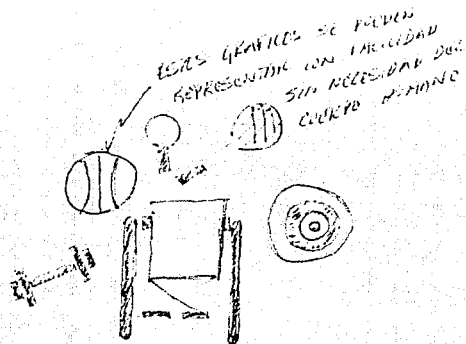 ESTOS GRAFICOS SE PUEDEN
REPRESENTAR CON FACILIDAD
SIN NECESIDAD DEL
CUERPO HUMANO